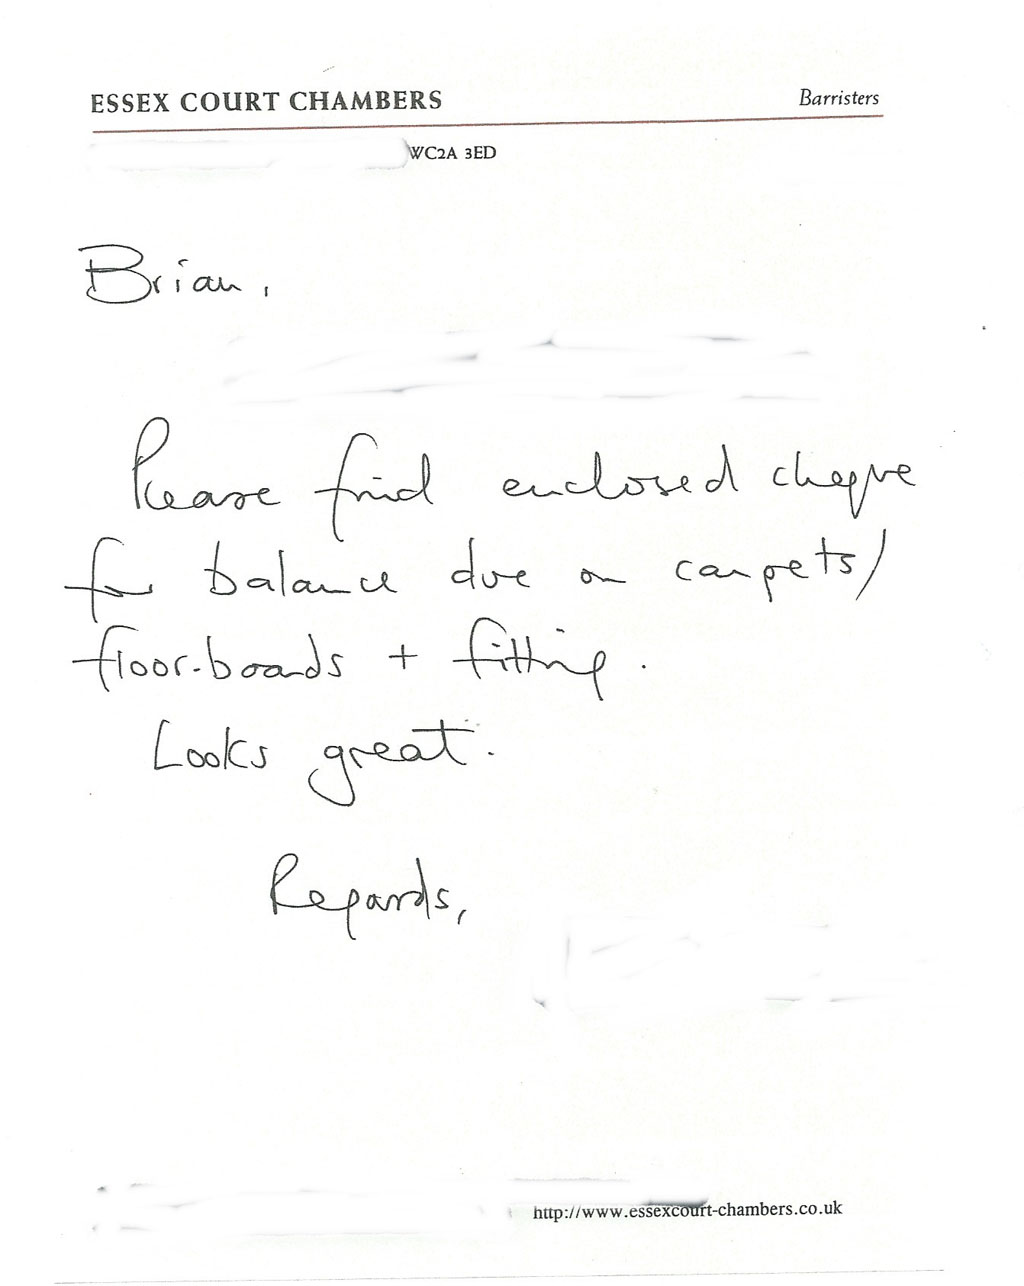 ESSEX COURT CHAMBERS Barristers
WC2A 3ED
Brian,
Please find enclosed cheque
for balance due on carpets/
floor-boards + fitting.
Looks great.
Regards,
http://www.essexcourt-chambers.co.uk